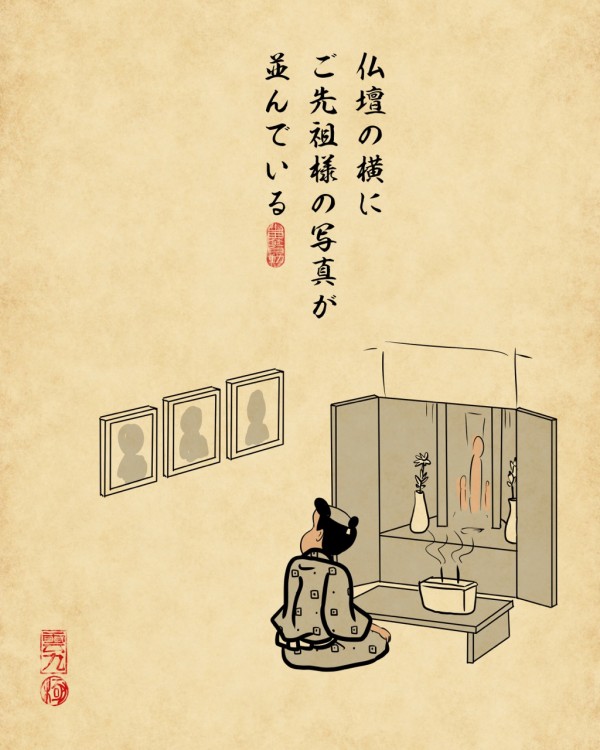 仏壇の横に
ご先祖様の写真が
並んでいる